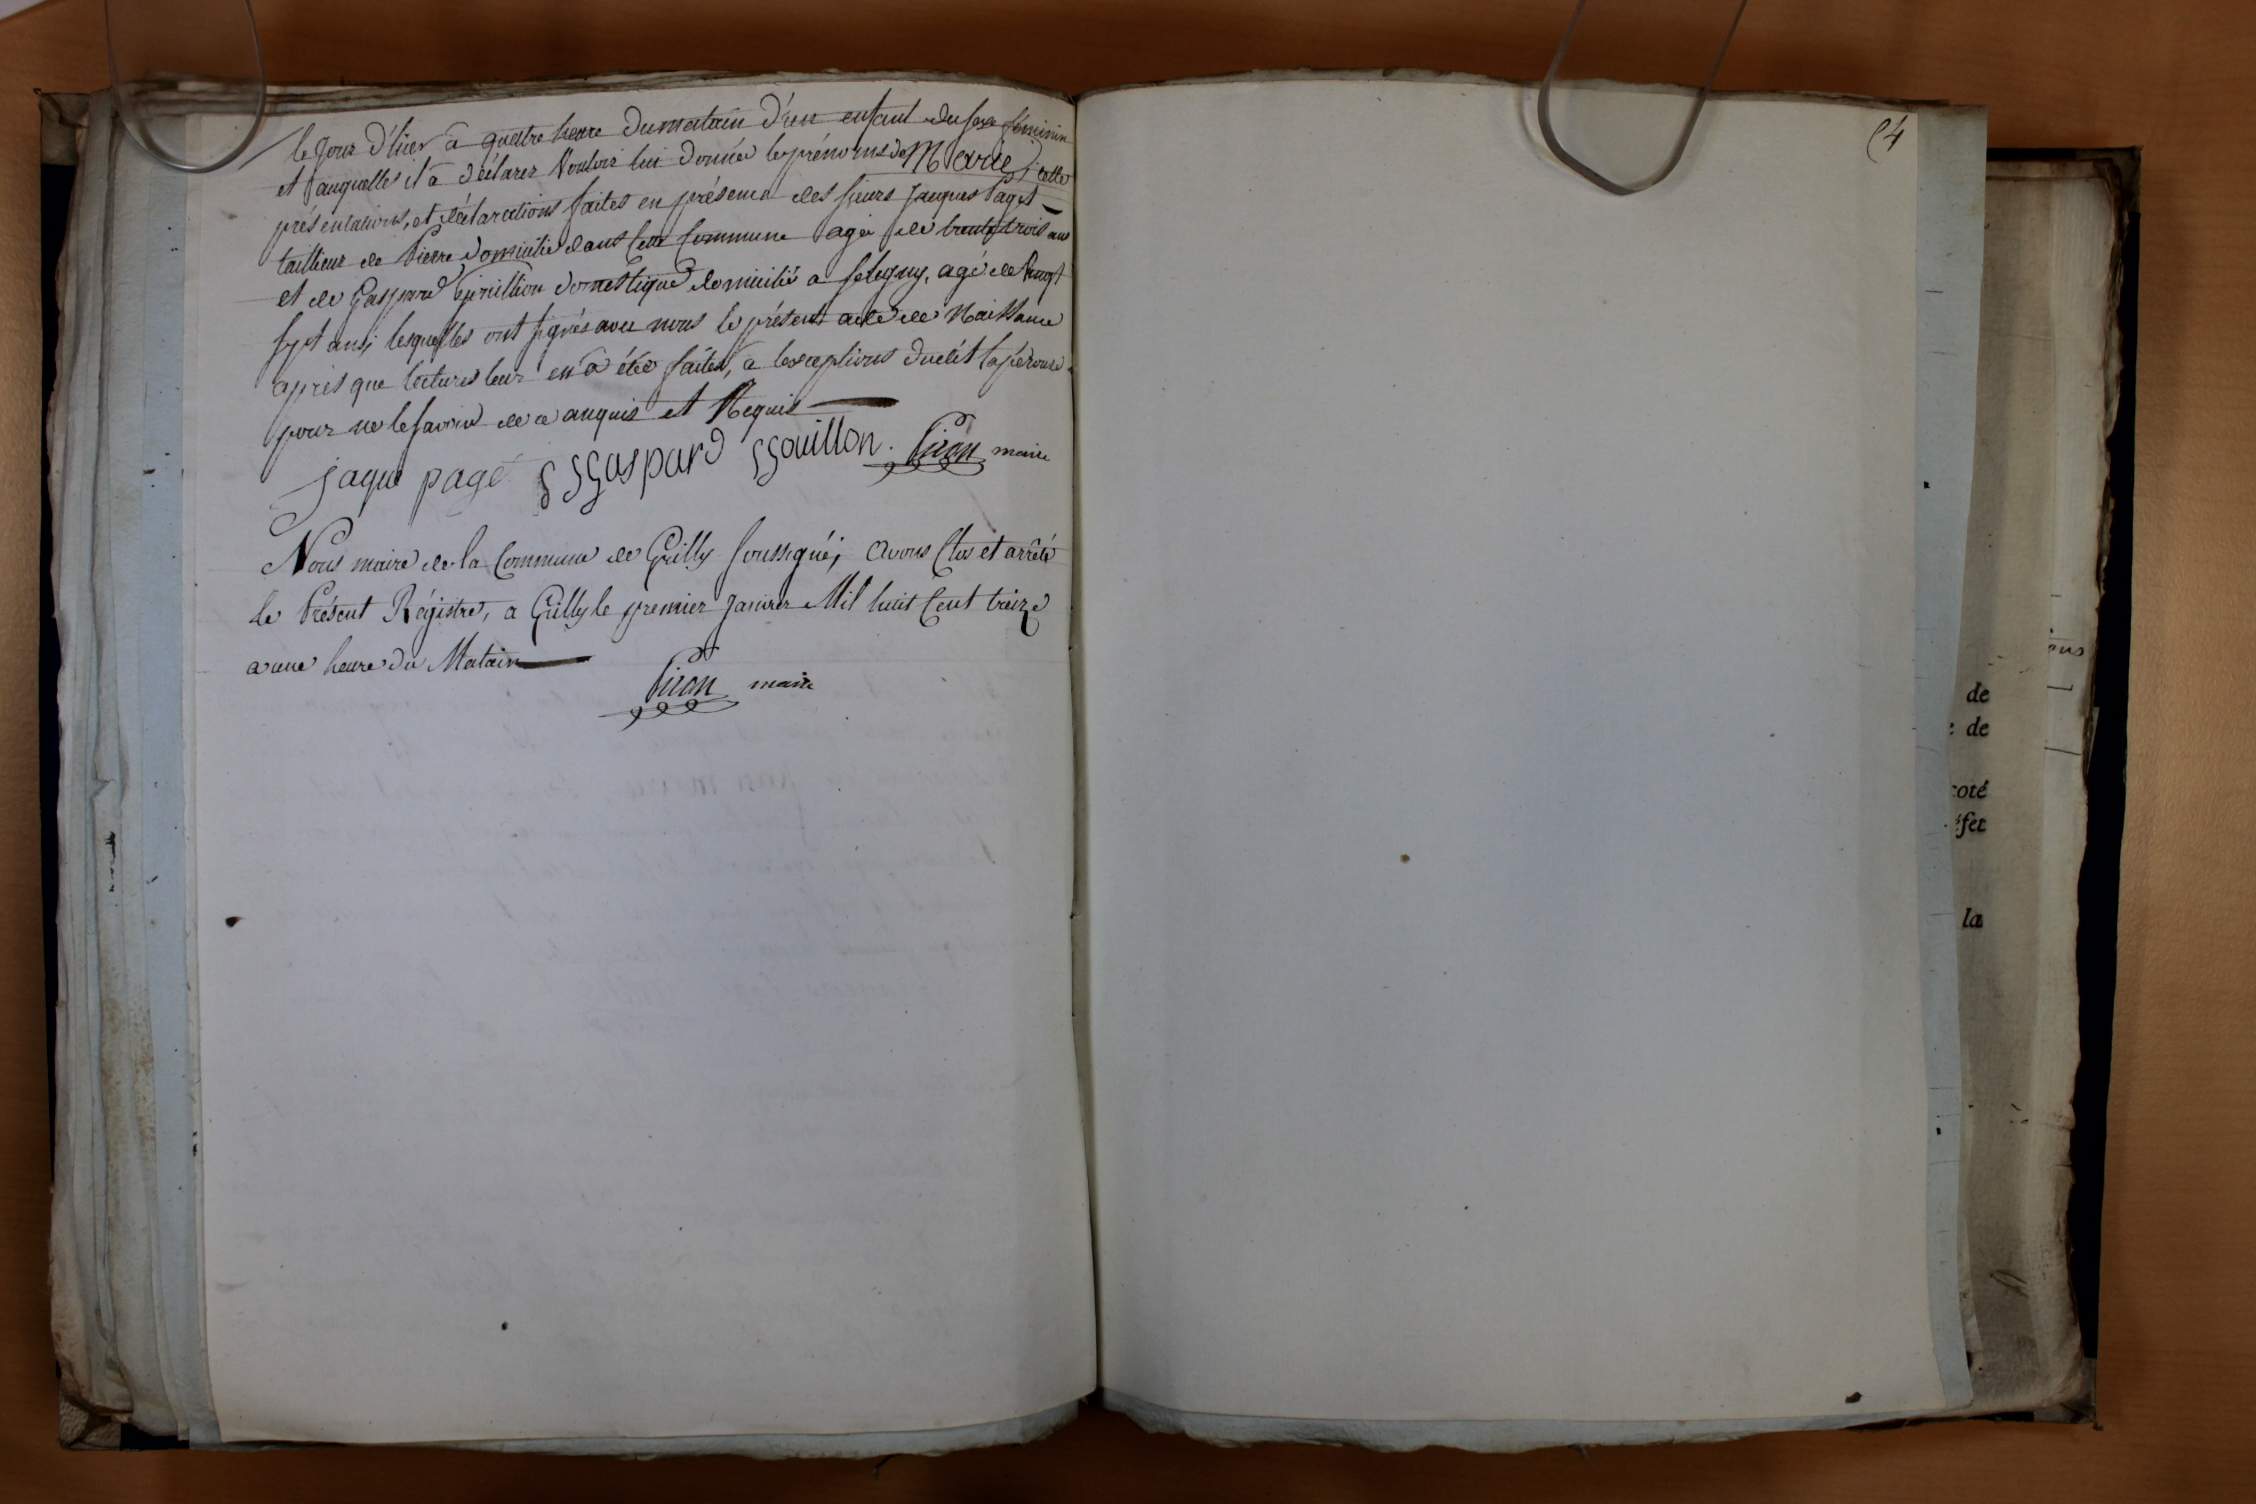 le jour d'hier à quattre heure du matain d'un enfant du sexe féminin
et auquelles il a déclarer Vouloir lui donnée les prénoms de Marie, cette
présentations, et déclarations faites en présence des sieurs Jacques Paget
taillieur de Pierre domicilié dans Cette Commune agé de trente trois ans
et de Gaspard domestique domicilié a Ségny, agé de Vingt
sept ans, lesquelles ont signés avec nous le présent acte de Naissance
après que lectures leur en à étée faites, a lexceptions dudit
pour ne le savoir de ce anquis et Requis
jaque pagé Gaspard gouillon. Piron maire
Nous maire de la Commune de Grilly soussigné, avons Clos et arrêté
le Présent Régistre, a Grilly le premier Janvier Mil huit Cent treize
a une heure du Matain
Piron maire
de
de
coté
éfet
la